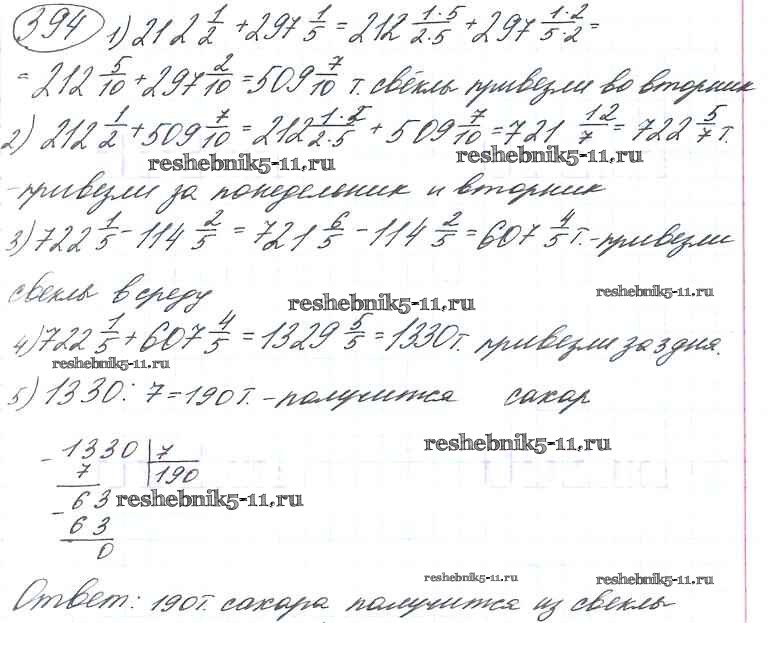 394 1) 212 1/2 + 297 1/5 = 212 1·5/2·5 + 297 1·2/5·2 =
= 212 5/10 + 297 2/10 = 509 7/10 т. свёклы привезли во вторник
2) 212 1/2 + 509 7/10 = 212 1·5/2·5 + 509 7/10 = 721 12/7 = 722 5/7 т.
reshebnik5-11.ru reshebnik5-11.ru
- привезли за понедельник и вторник
3) 722 1/5 - 114 2/5 = 721 6/5 - 114 2/5 = 607 4/5 т. - привезли
свеклы в среду reshebnik5-11.ru reshebnik5-11.ru
4) 722 1/5 + 607 4/5 = 1329 5/5 = 1330 т. привезли за 3 дня.
reshebnik5-11.ru
5) 1330 : 7 = 190 т. - получится сахар
reshebnik5-11.ru
- 1330 | 7
7 | 190
63 reshebnik5-11.ru
- 63
0
reshebnik5-11.ru reshebnik5-11.ru
Ответ: 190 т. сахара получится из свеклы